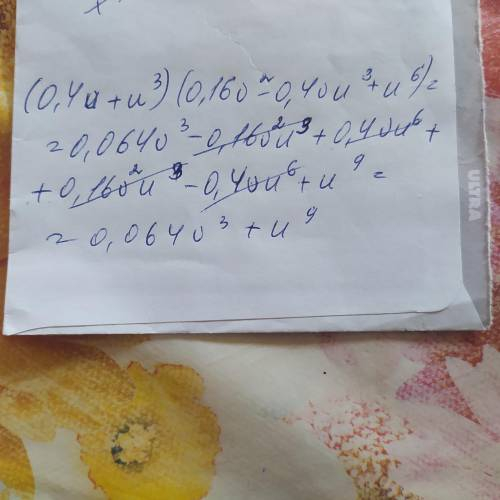 (0,4u+u³)(0,16υ²-0,4υu³+u⁶)=
=0,064υ³-0,16υ²u³+0,4υu⁶+
+0,16υ²u³-0,4υu⁶+u⁹=
=0,064υ³+u⁹
ULTRA